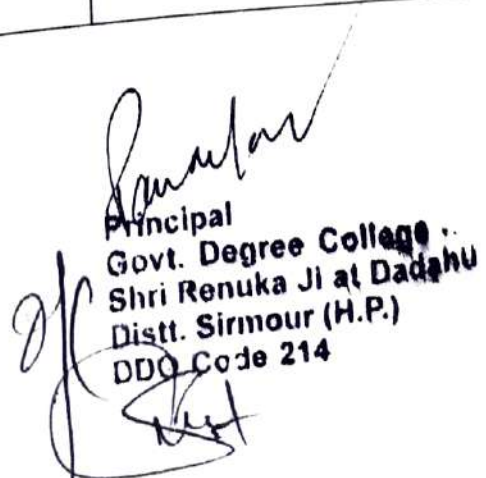 Principal
Govt. Degree College
Shri Renuka Ji at Dadahu
Distt. Sirmour (H.P.)
DDO Code 214